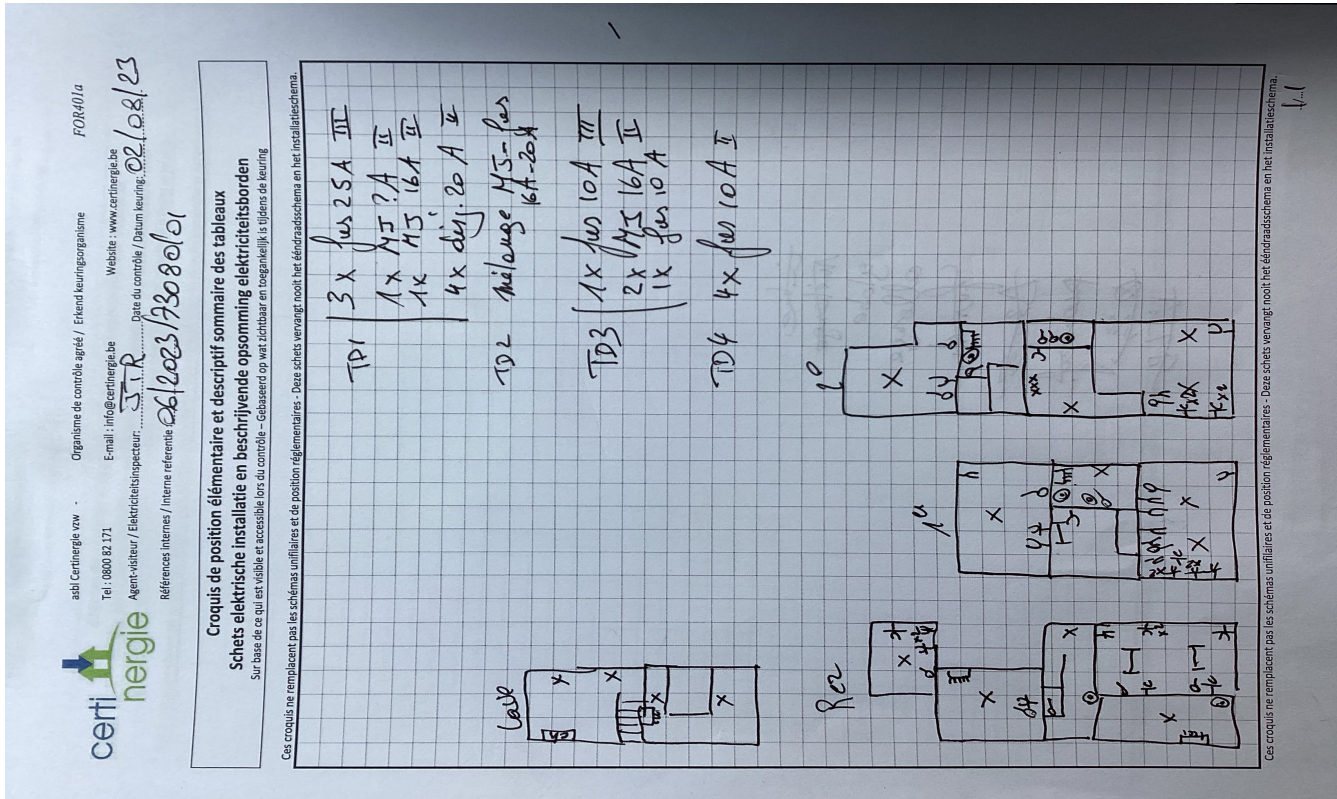 certi
nergie
asbl Certinergie vzw - Organisme de contrôle agréé / Erkend keuringsorganisme FOR401a
Tel : 0800 82 171 E-mail : info@certinergie.be Website : www.certinergie.be
Agent-visiteur / Elektriciteitsinspecteur: JTR Date du contrôle / Datum keuring: 02/08/23
Références internes / Interne referentie 06/2023/73080/01
Croquis de position élémentaire et descriptif sommaire des tableaux
Schets elektrische installatie en beschrijvende opsomming elektriciteitsborden
Sur base de ce qui est visible et accessible lors du contrôle – Gebaseerd op wat zichtbaar en toegankelijk is tijdens de keuring
Ces croquis ne remplacent pas les schémas unifilaires et de position réglementaires - Deze schets vervangt nooit het ééndraadsschema en het installatieschema.
TD1 3 x fus 25A III
1 x MJ ?A II
1x MJ 16A II
4x disj. 20A II
TD2 mélange MJ-fus
16A-20A
TD3 1x fus 10A III
2x MJ 16A II
1x fus 10A
TD4 4x fus 10A II
Cave
Rez
Ces croquis ne remplacent pas les schémas unifilaires et de position réglementaires - Deze schets vervangt nooit het ééndraadsschema en het installatieschema.